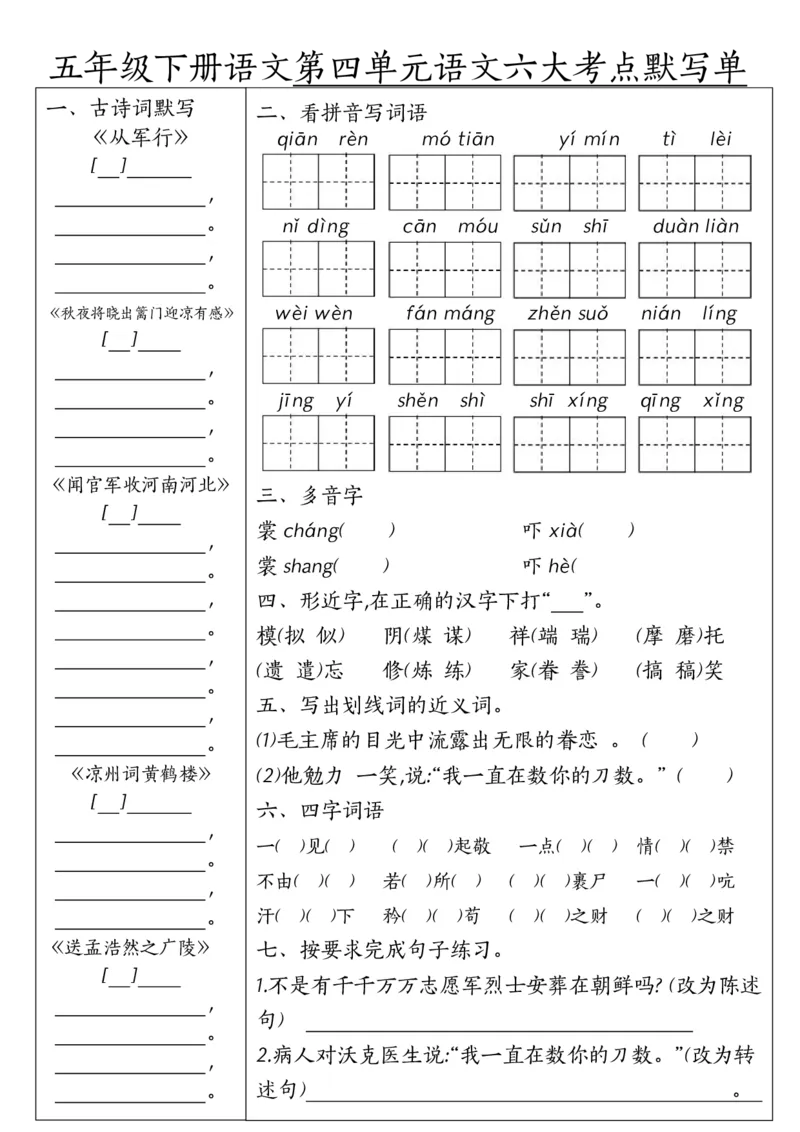 五年级下册语文第四单元语文六大考点默写单
一、古诗词默写
《从军行》
[__]______
______________，
______________。
______________，
______________。
《秋夜将晓出篱门迎凉有感》
[__]____
______________，
______________。
______________，
______________。
《闻官军收河南河北》
[__]____
______________，
______________。
______________，
______________。
______________，
______________。
______________，
______________。
《凉州词黄鹤楼》
[__]______
______________，
______________。
______________，
______________。
《送孟浩然之广陵》
[__]____
______________，
______________。
______________，
______________。
二、看拼音写词语
qiān rèn mó tiān yí mín tì lèi
nǐ dìng cān móu sǔn shī duàn liàn
wèi wèn fán máng zhěn suǒ nián líng
jīng yí shěn shì shī xíng qīng xǐng
三、多音字
裳 cháng( ) 吓 xià( )
裳 shang( ) 吓 hè(
四、形近字,在正确的汉字下打“___”。
模(拟 似) 阴(煤 谋) 祥(端 瑞) (摩 磨)托
(遗 遣)忘 修(炼 练) 家(眷 誊) (搞 稿)笑
五、写出划线词的近义词。
(1)毛主席的目光中流露出无限的眷恋 。 ( )
(2)他勉力 一笑,说:“我一直在数你的刀数。” ( )
六、四字词语
一( )见( ) ( )( )起敬 一点( )( ) 情( )( )禁
不由( )( ) 若( )所( ) ( )( )裹尸 一( )( )吭
汗( )( )下 矜( )( )苟 ( )( )之财 ( )( )之财
七、按要求完成句子练习。
1.不是有千千万万志愿军烈士安葬在朝鲜吗? (改为陈述
句) ____________________________________
2.病人对沃克医生说:“我一直在数你的刀数。”(改为转
述句)________________________________________。